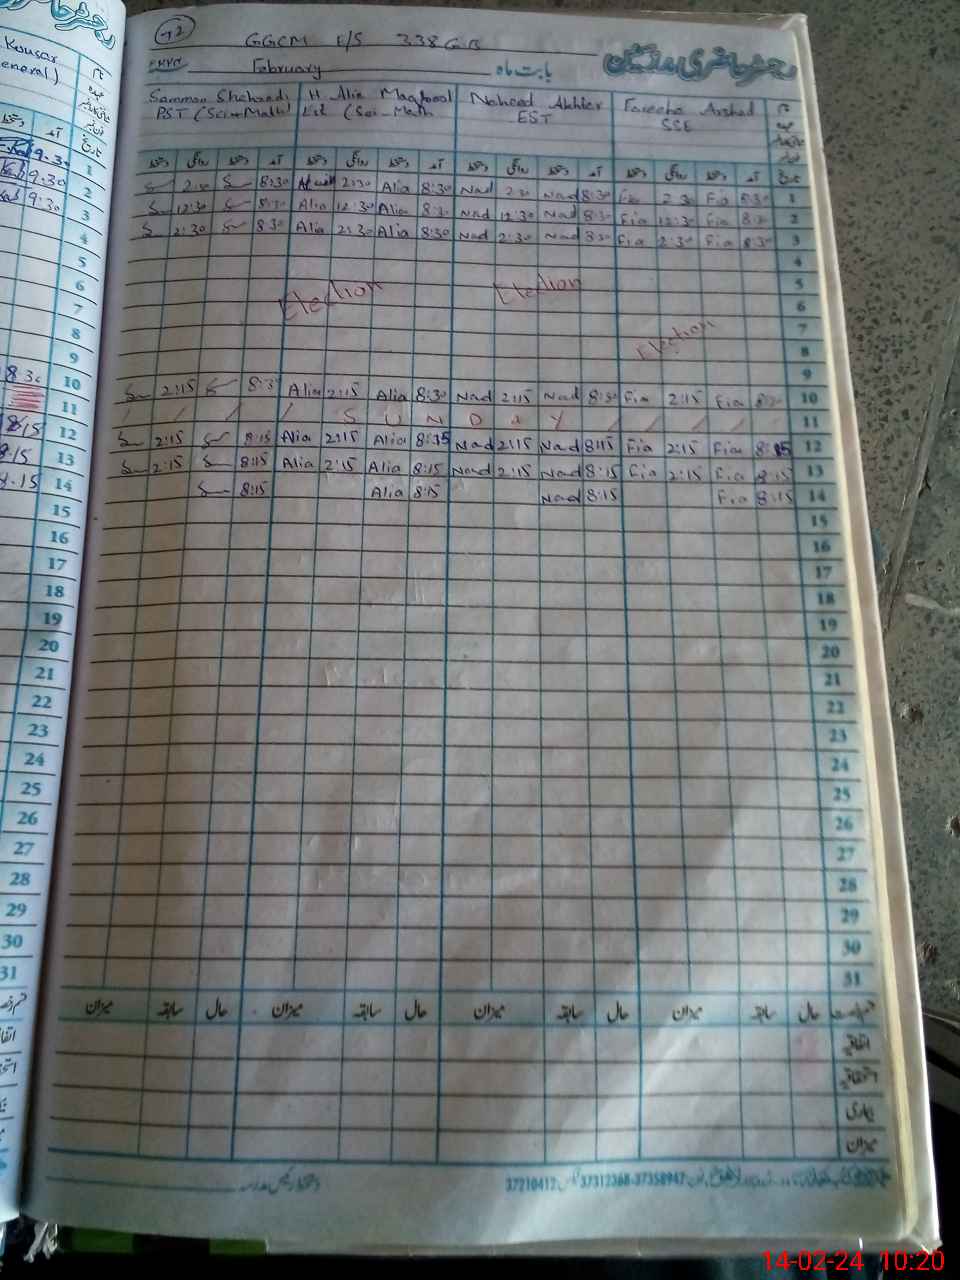 GGCM E/S 338 GB
رجسٹر حاضری مدرسین
February بابت ماہ
Samman Shahzadi H Alia Maqbool Naheed Akhter Fareeha Arshad
PST (Sci-Math) (Sci-Math EST SSE
دستخط روانگی دستخط آمد دستخط روانگی دستخط آمد دستخط روانگی دستخط آمد دستخط روانگی دستخط آمد تاریخ
2:30 8:30 2:30 Alia 8:30 Nad 2:30 Nad 8:30 Fia 2:30 Fia 8:30 1
12:30 8:30 Alia 12:30 Alia 8:30 Nad 12:30 Nad 8:30 Fia 12:30 Fia 8:30 2
2:30 8:30 Alia 2:30 Alia 8:30 Nad 2:30 Nad 8:30 Fia 2:30 Fia 8:30 3
4
5
Election Election 6
Election 7
8
9
2:15 8:30 Alia 2:15 Alia 8:30 Nad 2:15 Nad 8:30 Fia 2:15 Fia 8:30 10
S U N D A Y 11
2:15 8:15 Alia 2:15 Alia 8:15 Nad 2:15 Nad 8:15 Fia 2:15 Fia 8:15 12
2:15 8:15 Alia 2:15 Alia 8:15 Nad 2:15 Nad 8:15 Fia 2:15 Fia 8:15 13
8:15 Alia 8:15 Nad 8:15 Fia 8:15 14
15
16
17
18
19
20
21
22
23
24
25
26
27
28
29
30
31
میزان سابقہ حال میزان سابقہ حال میزان سابقہ حال میزان سابقہ حال
اتفاقیہ
استحقاقیہ
بیماری
میزان
دستخط رئیس مدرسہ
37210412 37312368-37358947
Kousar
General)
9.30 1
9.30 2
9.30 3
4
5
6
7
8
9
8:30 10
11
8:15 12
8.15 13
8.15 14
15
16
17
18
19
20
21
22
23
24
25
26
27
28
29
30
31
14-02-24 10:20